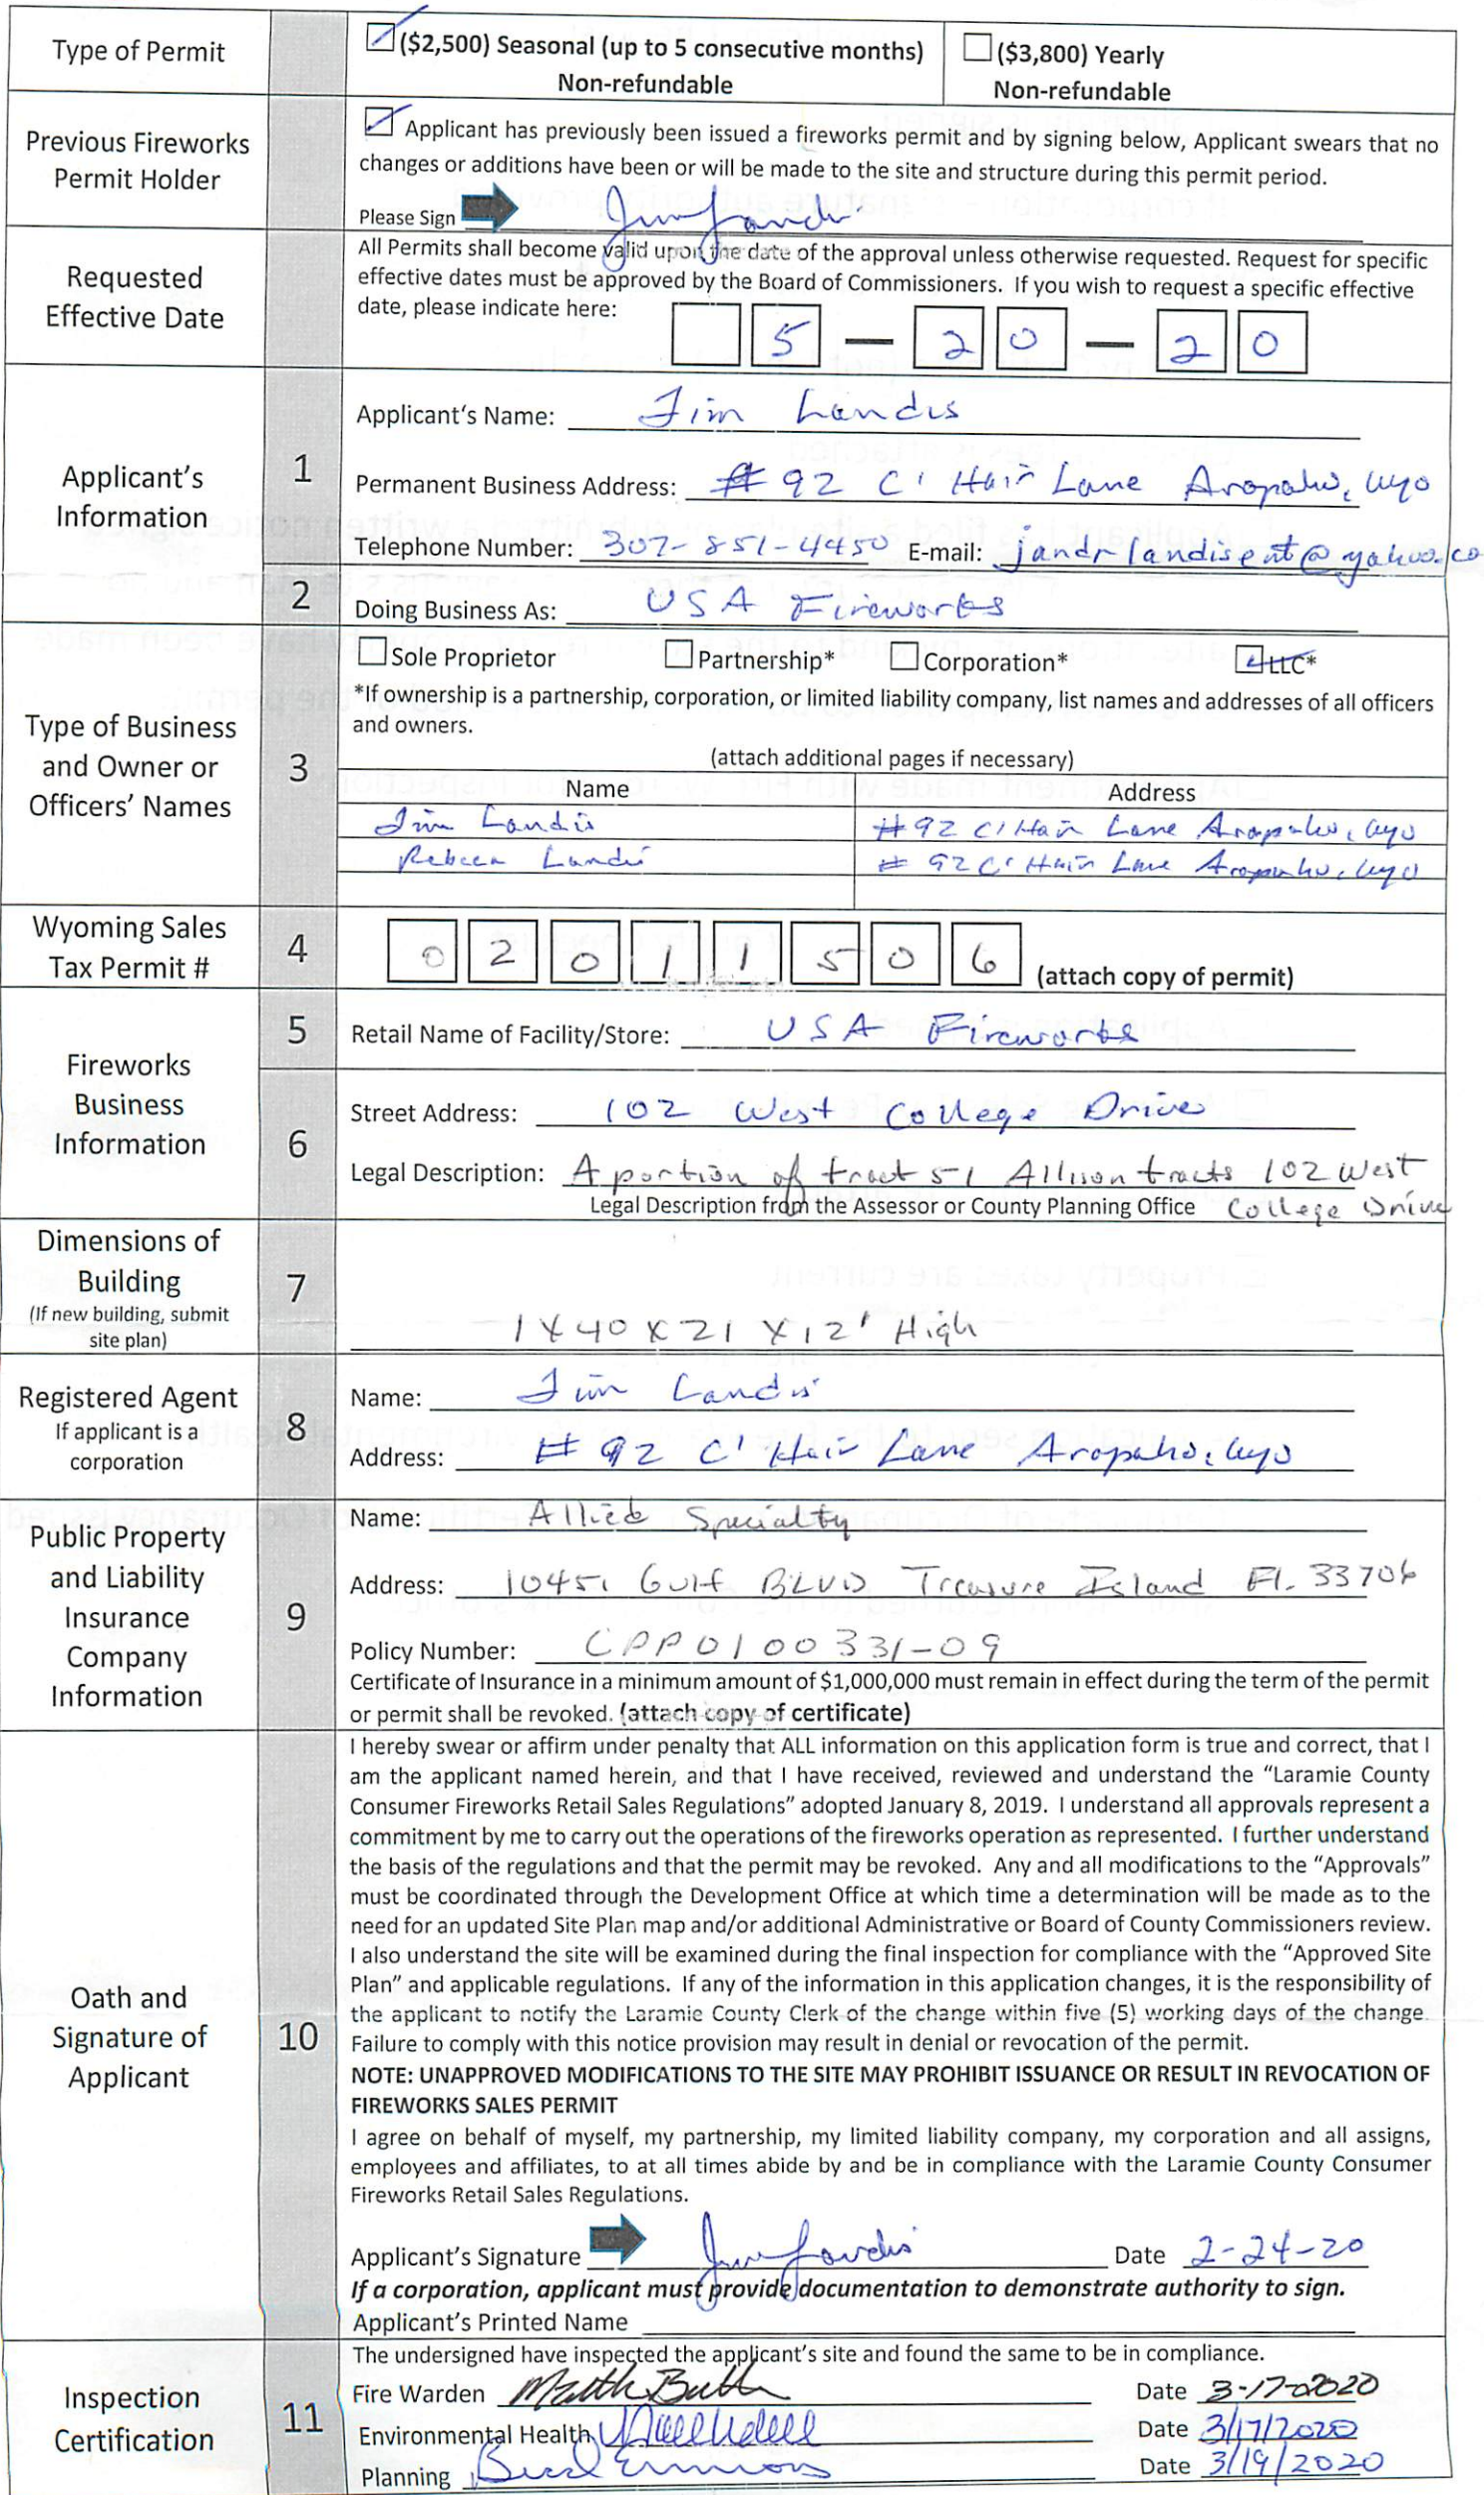 Type of Permit
($2,500) Seasonal (up to 5 consecutive months)
Non-refundable
($3,800) Yearly
Non-refundable
Previous Fireworks
Permit Holder
Applicant has previously been issued a fireworks permit and by signing below, Applicant swears that no
changes or additions have been or will be made to the site and structure during this permit period.
Please Sign Jim Landis
Requested
Effective Date
All Permits shall become valid upon the date of the approval unless otherwise requested. Request for specific
effective dates must be approved by the Board of Commissioners. If you wish to request a specific effective
date, please indicate here: 5 — 2 0 — 2 0
Applicant's
Information
1
Applicant's Name: Jim Landis
Permanent Business Address: # 92 C' Hair Lane Arapaho, Wyo
Telephone Number: 307-851-4450 E-mail: jandrlandisent@yahoo.co
2
Doing Business As: USA Fireworks
Type of Business
and Owner or
Officers' Names
3
Sole Proprietor Partnership* Corporation* LLC*
*If ownership is a partnership, corporation, or limited liability company, list names and addresses of all officers
and owners.
(attach additional pages if necessary)
Name Address
Jim Landis #92 C'Hair Lane Arapaho, Wyo
Rebecca Landis # 92 C' Hair Lane Arapaho, Wyo
Wyoming Sales
Tax Permit #
4
0 2 0 1 1 5 0 6 (attach copy of permit)
Fireworks
Business
Information
5
Retail Name of Facility/Store: USA Fireworks
6
Street Address: 102 West College Drive
Legal Description: A portion of tract 51 Allison tracts 102 West
Legal Description from the Assessor or County Planning Office College Drive
Dimensions of
Building
(If new building, submit
site plan)
7
1 X 40 X 21 X 12' High
Registered Agent
If applicant is a
corporation
8
Name: Jim Landis
Address: # 92 C' Hair Lane Arapaho, Wyo
Public Property
and Liability
Insurance
Company
Information
9
Name: Allied Specialty
Address: 10451 Gulf BLVD Treasure Island Fl. 33706
Policy Number: CPP0100331-09
Certificate of Insurance in a minimum amount of $1,000,000 must remain in effect during the term of the permit
or permit shall be revoked. (attach copy of certificate)
Oath and
Signature of
Applicant
10
I hereby swear or affirm under penalty that ALL information on this application form is true and correct, that I
am the applicant named herein, and that I have received, reviewed and understand the "Laramie County
Consumer Fireworks Retail Sales Regulations" adopted January 8, 2019. I understand all approvals represent a
commitment by me to carry out the operations of the fireworks operation as represented. I further understand
the basis of the regulations and that the permit may be revoked. Any and all modifications to the "Approvals"
must be coordinated through the Development Office at which time a determination will be made as to the
need for an updated Site Plan map and/or additional Administrative or Board of County Commissioners review.
I also understand the site will be examined during the final inspection for compliance with the "Approved Site
Plan" and applicable regulations. If any of the information in this application changes, it is the responsibility of
the applicant to notify the Laramie County Clerk of the change within five (5) working days of the change.
Failure to comply with this notice provision may result in denial or revocation of the permit.
NOTE: UNAPPROVED MODIFICATIONS TO THE SITE MAY PROHIBIT ISSUANCE OR RESULT IN REVOCATION OF
FIREWORKS SALES PERMIT
I agree on behalf of myself, my partnership, my limited liability company, my corporation and all assigns,
employees and affiliates, to at all times abide by and be in compliance with the Laramie County Consumer
Fireworks Retail Sales Regulations.
Applicant's Signature Jim Landis Date 2-24-20
If a corporation, applicant must provide documentation to demonstrate authority to sign.
Applicant's Printed Name
Inspection
Certification
11
The undersigned have inspected the applicant's site and found the same to be in compliance.
Fire Warden Date 3-17-2020
Environmental Health Date 3/17/2020
Planning Date 3/19/2020